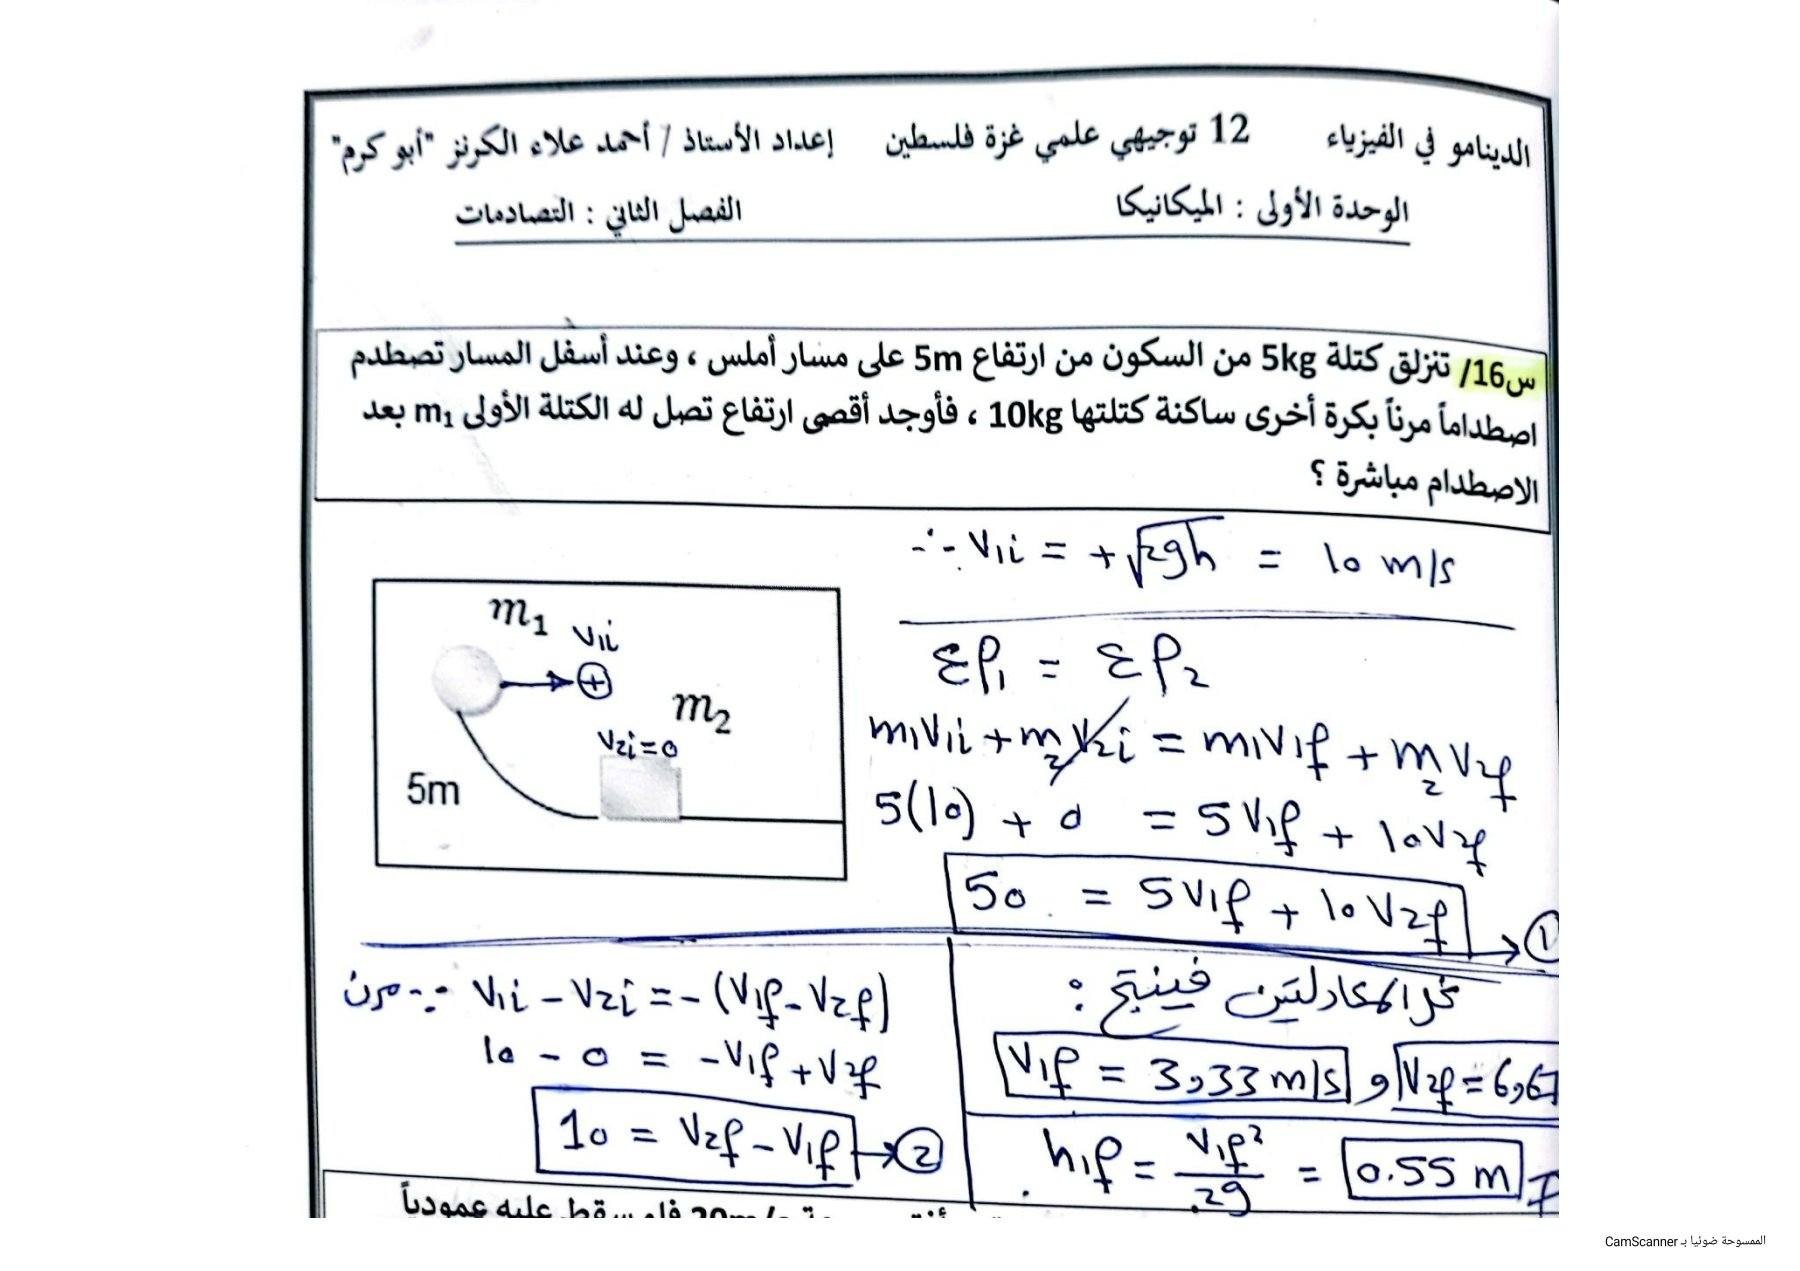 الدينامو في الفيزياء 12 توجيهي علمي غزة فلسطين إعداد الأستاذ / أحمد علاء الكرنز "أبو كرم"
الوحدة الأولى : الميكانيكا الفصل الثاني : التصادمات
س16/ تنزلق كتلة 5kg من السكون من ارتفاع 5m على مسار أملس ، وعند أسفل المسار تصطدم
اصطداماً مرناً بكرة أخرى ساكنة كتلتها 10kg ، فأوجد أقصى ارتفاع تصل له الكتلة الأولى m₁ بعد
الاصطدام مباشرة ؟
∴ V1i = +√2gh = 10 m/s
m1
V1i
+
m2
V2i=0
5m
ΣP1 = ΣP2
m1V1i + m2V2i = m1V1f + m2V2f
5(10) + 0 = 5V1f + 10V2f
50 = 5V1f + 10V2f → 1
∵ مرن V1i - V2i = -(V1f - V2f)
10 - 0 = -V1f + V2f
10 = V2f - V1f → 2
المعادلتين فينتج :
V1f = 3,33 m/s و V2f = 6,67
h1f = V1f²/2g = 0.55 m
20m/s فلو سقط عليه عمودياً
الممسوحة ضوئيا بـ CamScanner